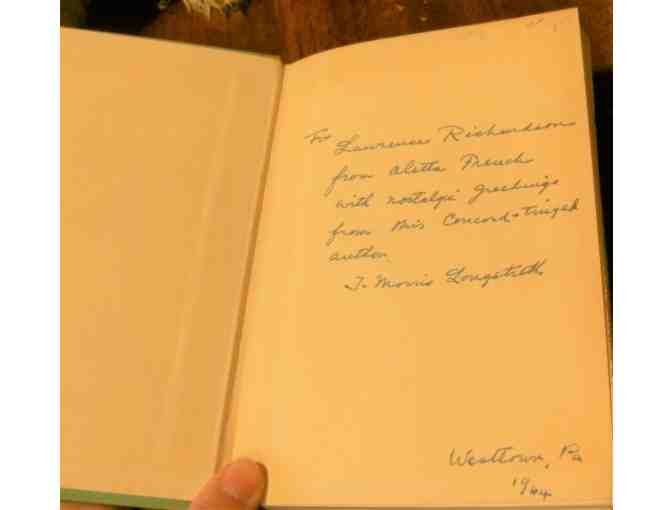 For Lawrence Richardson
from Aletta French
with nostalgic greetings
from this Concord-tinged
author.
T. Morris Longstreth
Westtown, Pa
1964